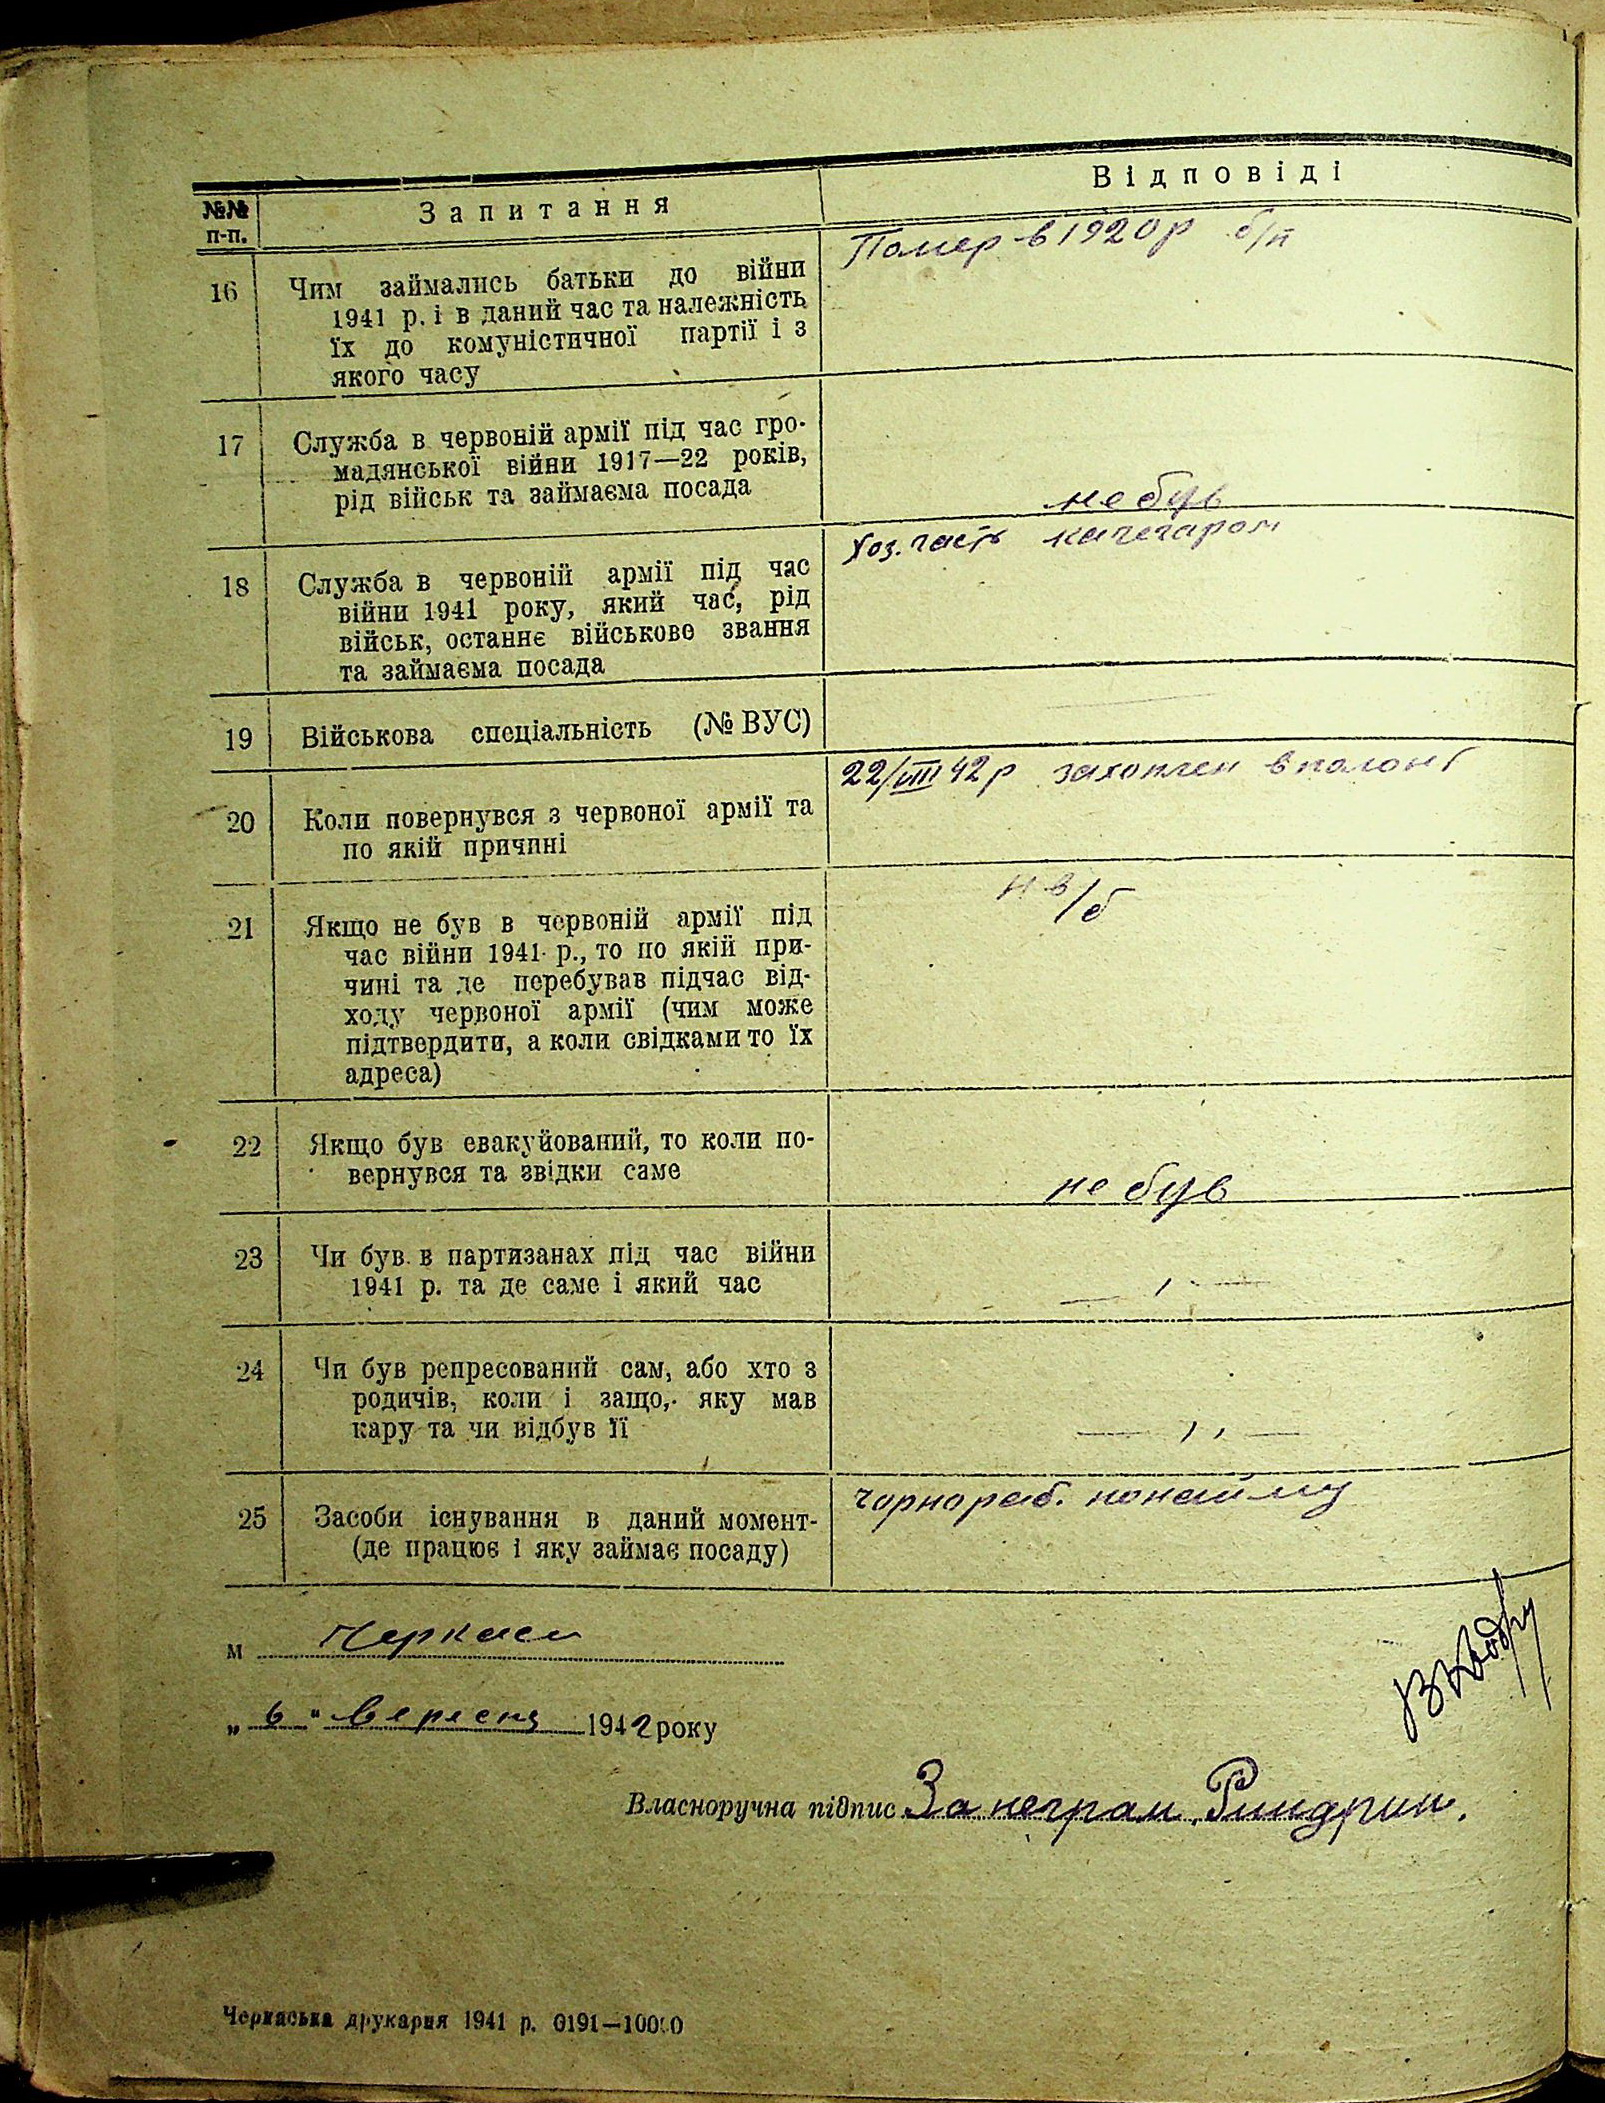 №№ п-п.
Запитання
Відповіді
16
Чим займались батьки до війни
1941 р. і в даний час та належність
їх до комуністичної партії і з
якого часу
Помер в 1920 р б/п
17
Служба в червоній армії під час гро-
мадянської війни 1917—22 років,
рід військ та займаєма посада
не був
18
Служба в червоній армії під час
війни 1941 року, який час, рід
військ, останнє військове звання
та займаєма посада
Хоз. часть качегаром
19
Військова спеціальність (№ ВУС)
20
Коли повернувся з червоної армії та
по якій причині
22/VIII 42 р захоплен в полоні
21
Якщо не був в червоній армії під
час війни 1941 р., то по якій при-
чині та де перебував підчас від-
ходу червоної армії (чим може
підтвердити, а коли свідками то їх
адреса)
22
Якщо був евакуйований, то коли по-
вернувся та звідки саме
не був
23
Чи був в партизанах під час війни
1941 р. та де саме і який час
24
Чи був репресований сам, або хто з
родичів, коли і защо, яку мав
кару та чи відбув її
— ,, —
25
Засоби існування в даний момент-
(де працює і яку займає посаду)
чорнораб. понайму
м Черкаси
„ 6 " вересня 1942 року
Власноручна підпис За неграм.
Черкаська друкарня 1941 р. 0191—10000